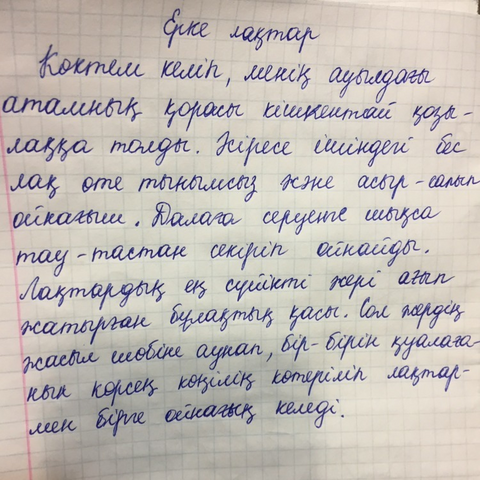 Ерке лақтар
Көктем келіп, менің ауылдағы
атамның қорасы кішкентай қозы-
лаққа толды. Әсіресе ішіндегі бес
лақ өте тынымсыз және асыр-салып
ойнағыш. Далаға серуенге шықса
тау-тастан секіріп ойнайды.
Лақтардың ең сүйікті жері ағып
жатырған бұлақтың қасы. Сол жердің
жасыл шөбіне аунап, бір-бірін қуалаға-
нын көрсең көңілің көтеріліп лақтар-
мен бірге ойнағың келеді.